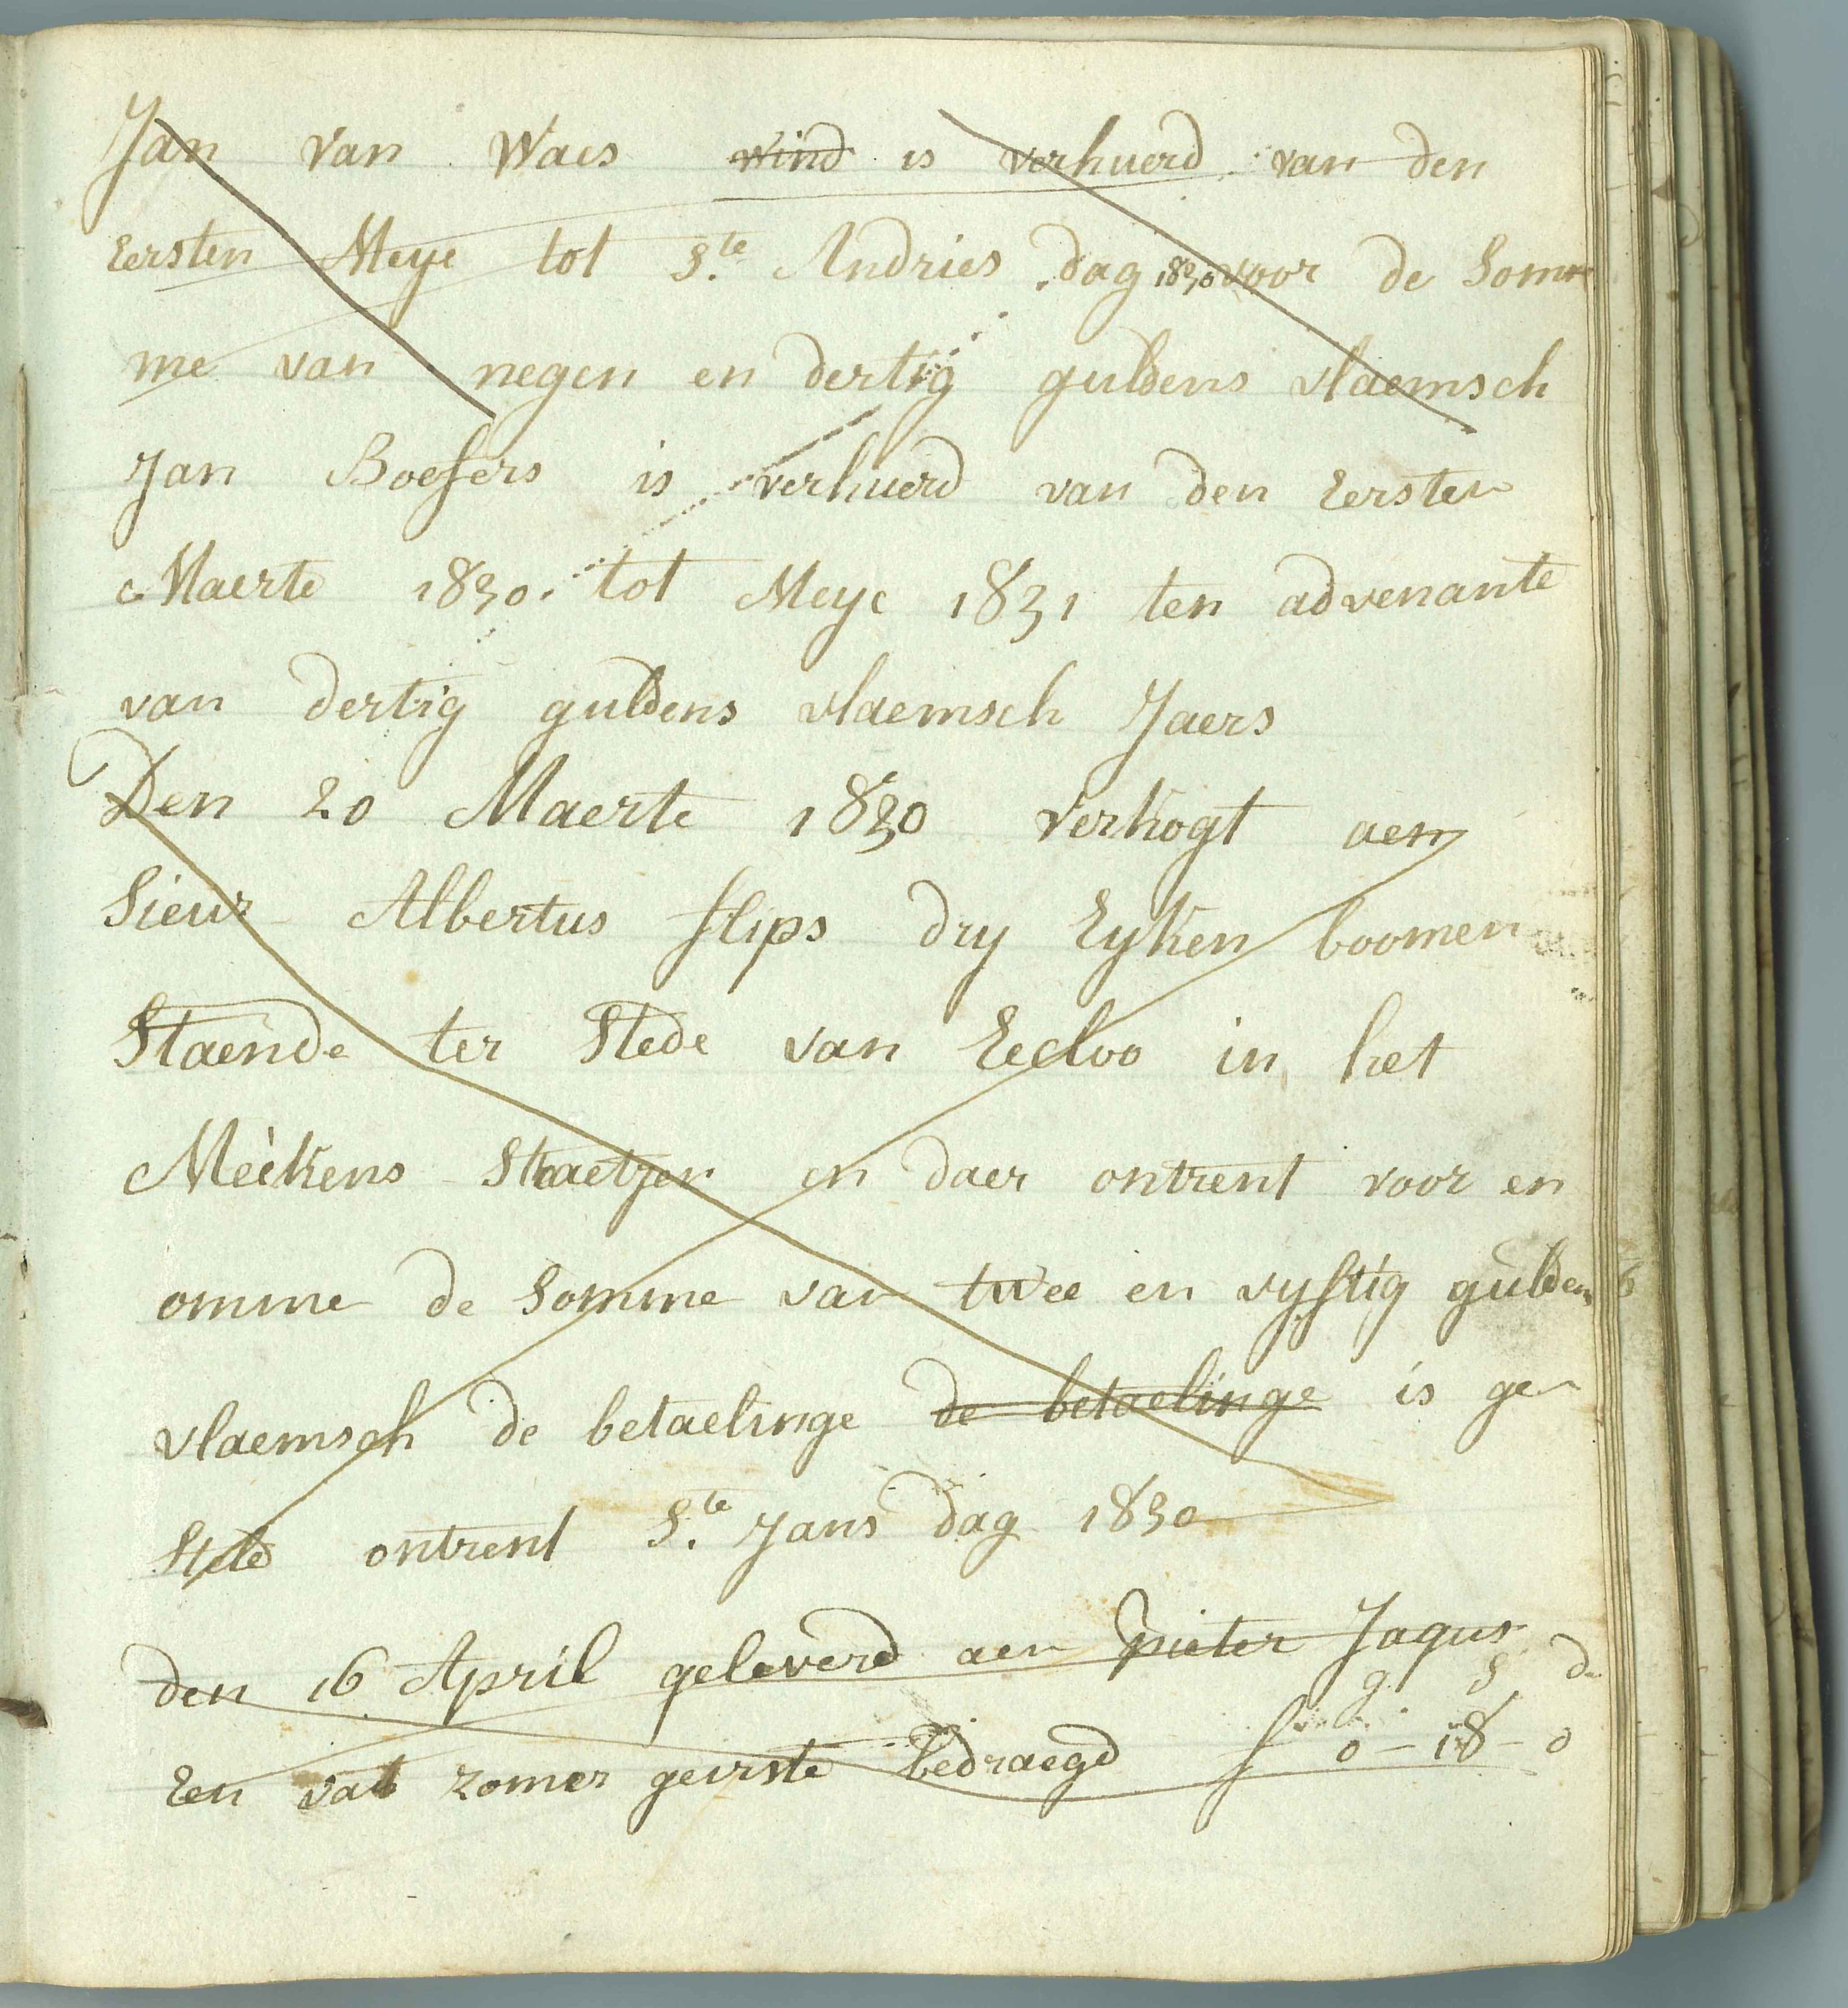 Jan van Waes wind is verhuerd van den
Eersten Meye tot S.te Andries dag 1830 voor de Som
me van negen en dertig guldens vlaemsch
Jan Boesers is verhuerd van den Eersten
Maerte 1830 tot Meye 1831 ten advenante
van dertig guldens vlaemsch Jaers
Den 20 Maerte 1830 verkogt aen
Sieur Albertus slips dry Eyken boomen
Staende ter Stede van Eecloo in het
Mèèkens Straetjen en daer ontrent voor en
omme de Somme van twee en vyftig guldens
vlaemsch de betaelinge de betaelinge is ge
Steld ontrent S.te Jans dag 1830
den 16 April geleverd aen pieter Jaqus
g S d
Een vat zomer geirste bedraegd f 0 - 18 - 0